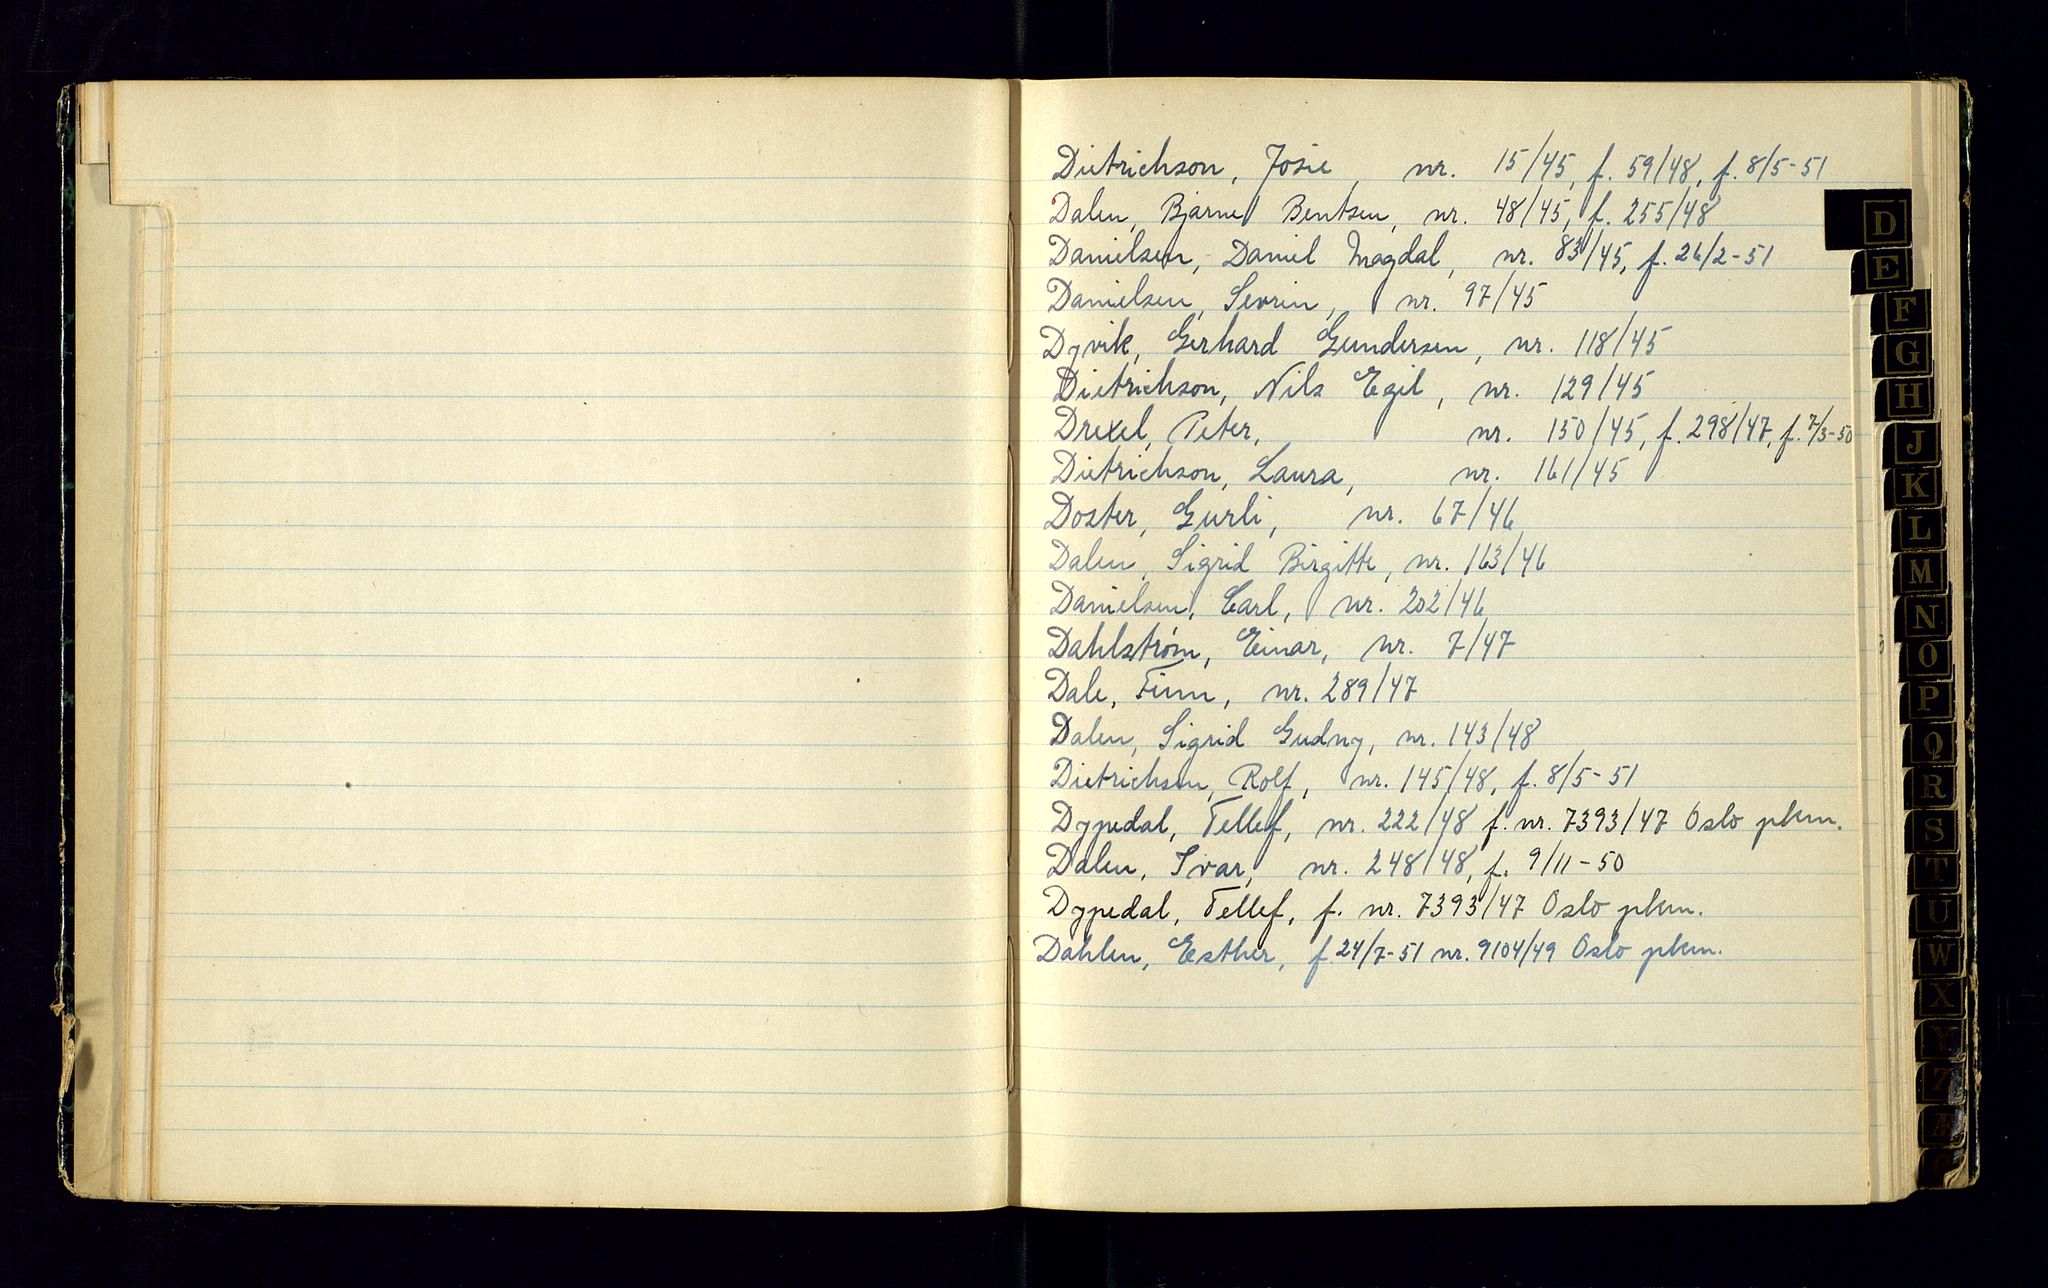 Dietrichson, Josie, nr. 15/45, f. 59/48, f. 8/5-51
Dalen, Bjarne Bentsen, nr. 48/45, f. 255/48
Danielsen, Daniel Magdal, nr. 83/45, f. 26/2-51
Danielsen, Sevrin, nr. 97/45
Dyvik, Gerhard Gundersen, nr. 118/45
Dietrichson, Nils Egil, nr. 129/45
Drexel, Peter, nr. 150/45, f. 298/47, f. 7/3-50
Dietrichson, Laura, nr. 161/45
Doster, Gurli, nr. 67/46
Dalen, Sigrid Birgitte, nr. 163/46
Danielsen, Carl, nr. 202/46
Dahlstrøm, Einar, nr. 7/47
Dale, Finn, nr. 289/47
Dalen, Sigrid Gudny, nr. 143/48
Dietrichson, Rolf, nr. 145/48, f. 8/5-51
Dypedal, Tellef, nr. 222/48 f. nr. 7393/47 Oslo pkm.
Dalen, Ivar, nr. 248/48, f. 9/11-50
Dypedal, Tellef, f. nr. 7393/47 Oslo pkm.
Dahlen, Esther, f. 24/7-51 nr. 9104/49 Oslo pkm.
D
E
F
G
H
J
K
L
M
N
O
P
Q
R
S
T
U
W
X
Y
Z
Æ